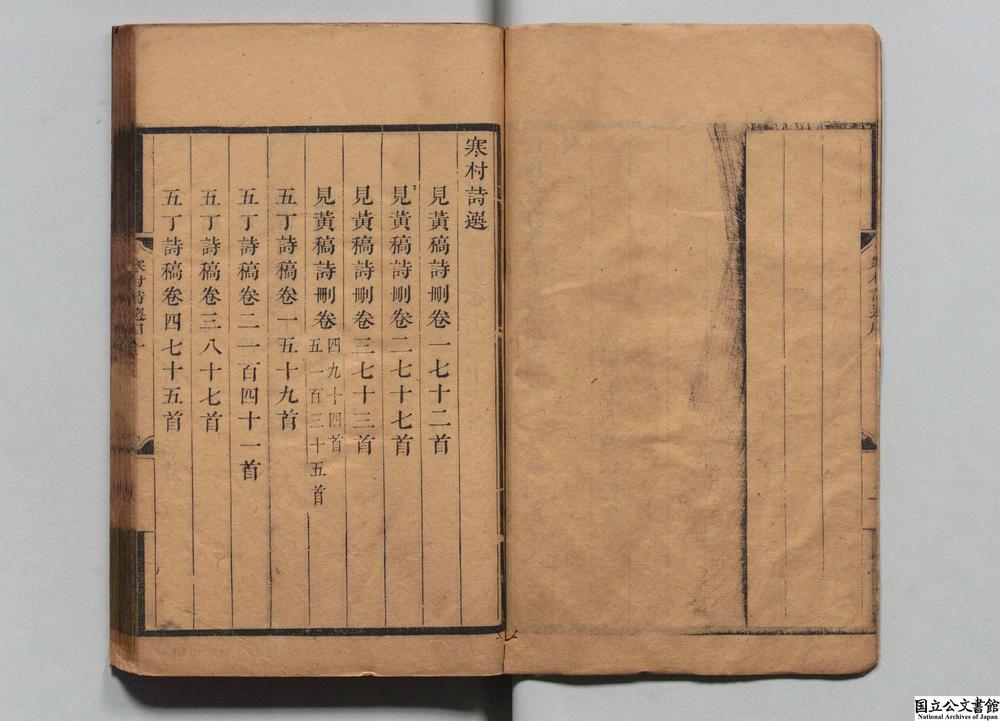 寒村詩選
見黃稿詩刪卷一七十二首
見黃稿詩刪卷二七十七首
見黃稿詩刪卷三七十三首
見黃稿詩刪卷四九十四首
五一百三十五首
五丁詩稿卷一五十九首
五丁詩稿卷二一百四十一首
五丁詩稿卷三八十七首
五丁詩稿卷四七十五首
寒村詩選目一
国立公文書館
National Archives of Japan